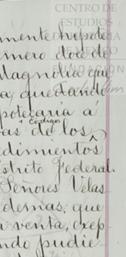 CENTRO DE
ESTUDIOS
mente hipote
mero dos de
Magnolia que
a, quedando
potecaria á
as de los
Codigos
dimientos
istrito Federal.
Señores Velas
demas, que
a venta, excep
ndo pudie